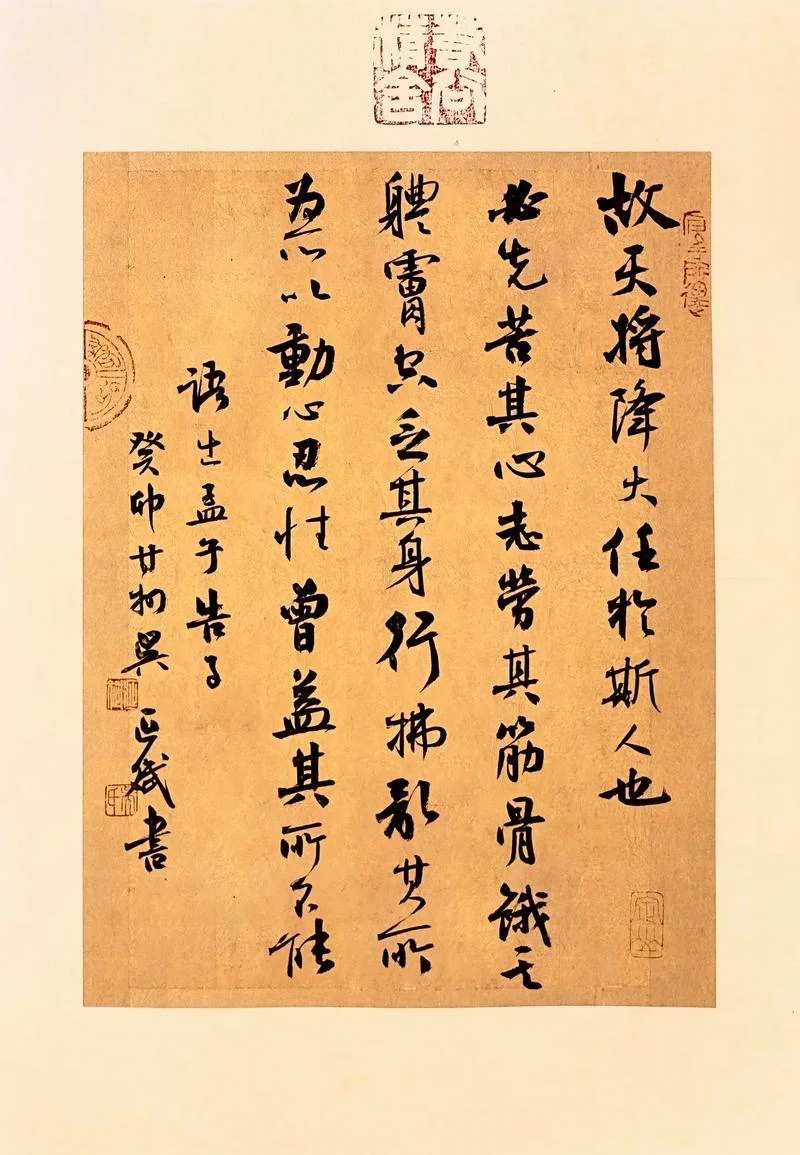 故天将降大任於斯人也
必先苦其心志勞其筋骨餓其
軆膚空乏其身行拂亂其所
為所以動心忍性曾益其所不能
語出孟子告子
癸卯吴正書